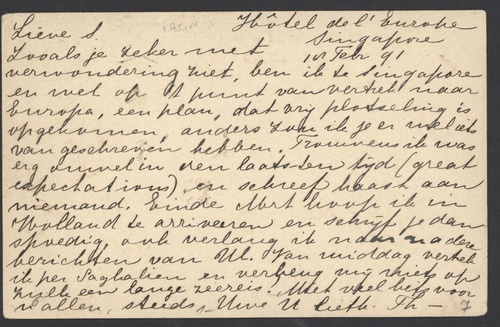 Hôtel de l'Europe
Singapore
Febr 91
Lieve S.
Zooals je zeker met
verwondering ziet, ben ik te Singapore
en wel op 't punt van vertrek naar
Europa, een plan, dat vrij plotseling is
opgekomen, anders zou ik je er wel iets
van geschreven hebben. Trouwens ik was
erg onwel in den laatsten tijd (great
expectations) en schreef haast aan
niemand. Einde Mrt hoop ik in
Holland te arriveeren en schrijf je dan
spoedig, ook verlang ik naar nadere
berichten van Ul. Van middag vertrek
ik per Saghalien en verheug mij niets op
zulk een lange zeereis. Met veel liefs voor
U allen, steeds, Uwe U liefh. Th –
7